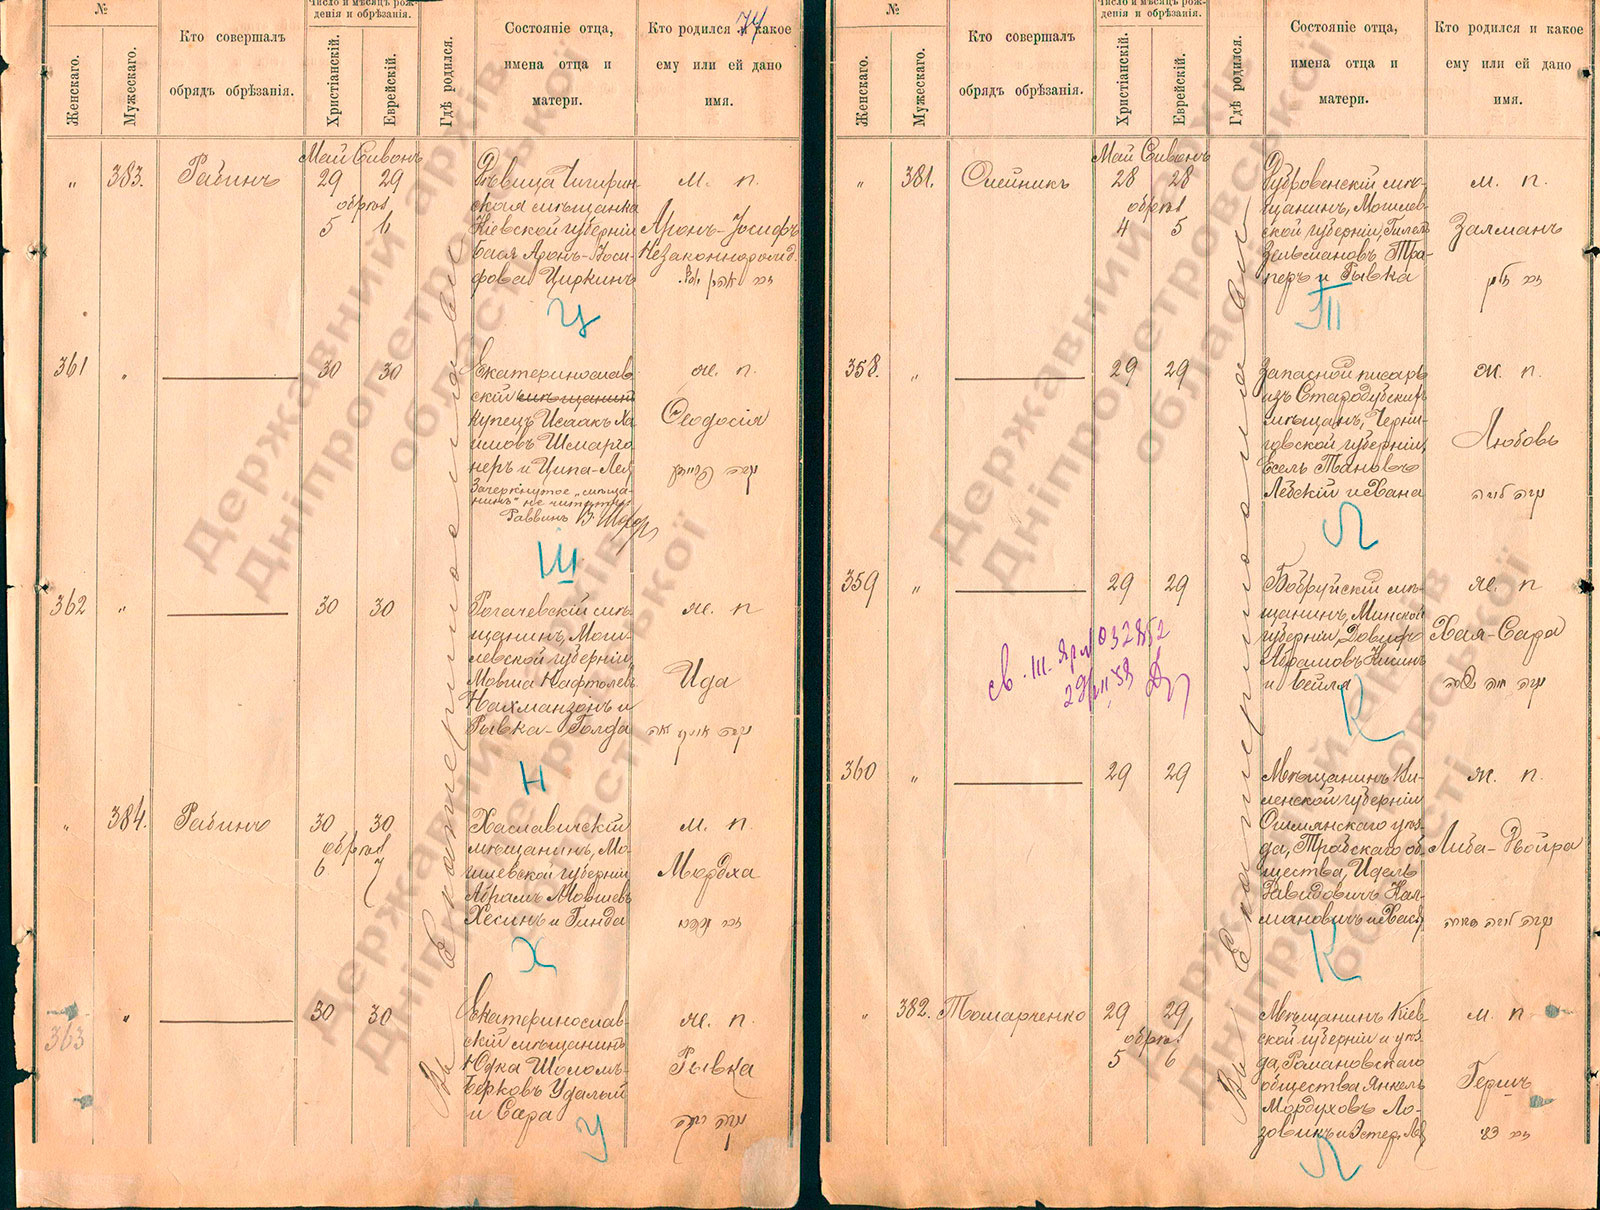 74
№
Женскаго.
Мужескаго.
Кто совершалъ
обрядъ обрѣзанія.
Число и мѣсяцъ рож-
денія и обрѣзанія.
Христіанскій.
Еврейскій.
Гдѣ родился.
Состояніе отца,
имена отца и
матери.
Кто родился и какое
ему или ей дано
имя.
Май Сивонъ
" 383. Рабинъ 29 29
обрѣз
5 6
Дѣвица Чигирин-
ская мѣщанка
Кіевской губерніи
Бася Аронъ-Іоси-
фова Циркинъ
м. п.
Аронъ-Іосифъ
Незаконнорожд.
Ц
361 " 30 30
Екатеринослав
скій мѣщанинъ
купецъ Исаакъ Ха
имовъ Шмарго
неръ и Ципа-Лея
Зачеркнутое „мѣща-
нинъ" не читать
Раввинъ
ж. п.
Ѳеодосія
Ш
362 " 30 30
Рогачевскій мѣ-
щанинъ, Моги-
левской губерніи
Мовша Нафтолевъ
Нахманзонъ и
Рывка-Голда
ж. п
Ида
Н
" 384. Рабинъ 30 30
обрѣз
6 7
Хаславичскій
мѣщанинъ, Мо-
гилевской губерніи
Абрамъ Мовшевъ
Хесинъ и Гинда
м. п.
Мордха
Х
363 " 30 30
Екатеринослав-
скій мѣщанинъ
Юдка Шоломъ-
Берковъ Удалый
и Сара
ж. п.
Рывка
У
Въ Екатеринославѣ
№
Женскаго.
Мужескаго.
Кто совершалъ
обрядъ обрѣзанія.
Число и мѣсяцъ рож-
денія и обрѣзанія.
Христіанскій.
Еврейскій.
Гдѣ родился.
Состояніе отца,
имена отца и
матери.
Кто родился и какое
ему или ей дано
имя.
Май Сивонъ
" 381. Олейникъ 28 28
обрѣз
4 5
Дубровенскій мѣ-
щанинъ, Могилев-
ской губерніи, Гилель
Зельмановъ Тра-
перъ и Рывка
м. п.
Залманъ
Т
358. " 29 29
Запасной писарь
изъ Стародубскихъ
мѣщанъ, Черни-
говской губерніи,
Есель Тановъ
Лебскій и Хана
ж. п.
Любовь
Л
359 " 29 29
Бобруйскій мѣ-
щанинъ, Минской
губерніи, Довидъ
Абрамовъ Кисинъ
и Бейля
ж. п
Хая-Сара
К
360 " 29 29
Мѣщанинъ Ви-
ленской губерніи
Ошмянскаго уѣз-
да, Трабскаго об-
щества, Идель
Давидовичъ Кал-
мановичъ и Хася
ж. п.
Либа-Двойра
К
" 382. Томарченко 29 29
обрѣз
5 6
Мѣщанинъ Кіев-
ской губерніи и уѣз-
да, Романовскаго
общества Янкель
Мордуховъ Ло-
зовикъ и Эстер. Лея
м. п
Гершъ
Л
Въ Екатеринославѣ
Державний архів
Дніпропетровської
області